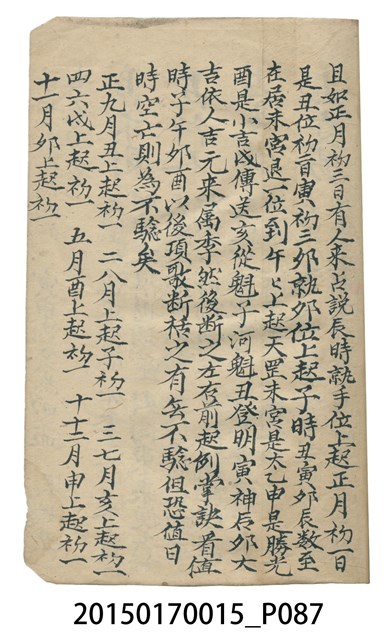 且如正月初三日有人來占説辰時就手位上起正月初一日
是丑位初二日寅初三卯就卯位上起子時丑寅卯辰数至
在居未宮退一位到午午上起天罡未宮是太乙申是勝光
酉是小吉戌傳送亥從魁子河魁丑登明寅神后卯大
吉依人吉元來属李然後断之左右前起例掌訣看值
時子午卯酉以後項歌断禍之有無不驗但恐值日
時空亡則為不驗矣
正九月丑上起初一 二八月上起子初一 三七月亥上起初一
四六戌上起初一 五月酉上起初一 十十二月申上起初一
十一月卯上起初一
20150170015_P087